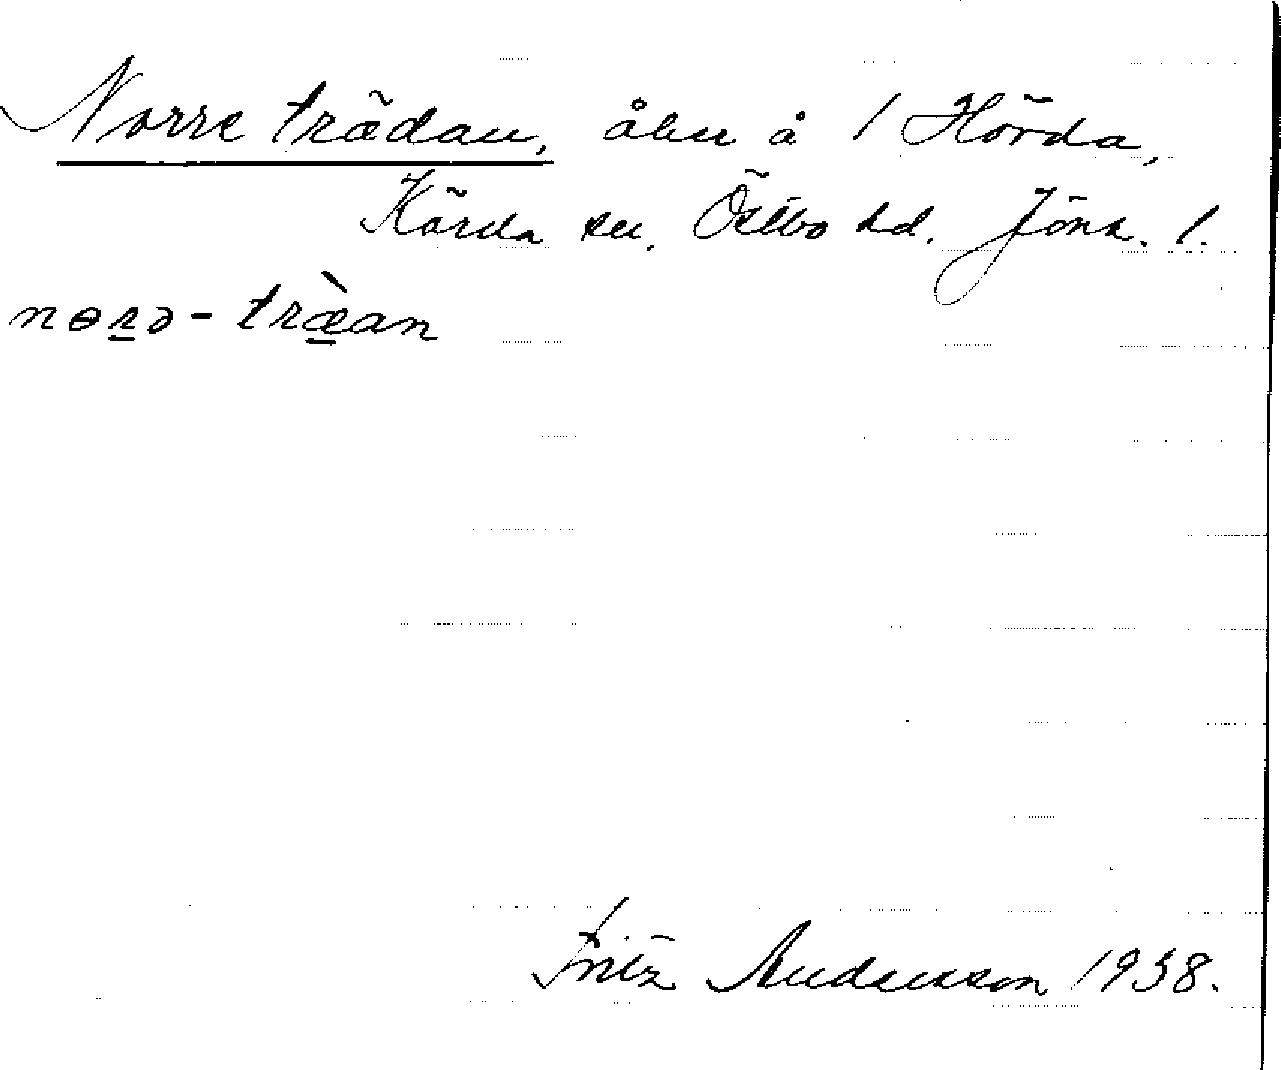 Norre trädan, åker å 1 Hörda,
Kärda sn, Östbo hd, Jönk. l.
nɵrə-træ̀an
Fritz Andersson 1938.